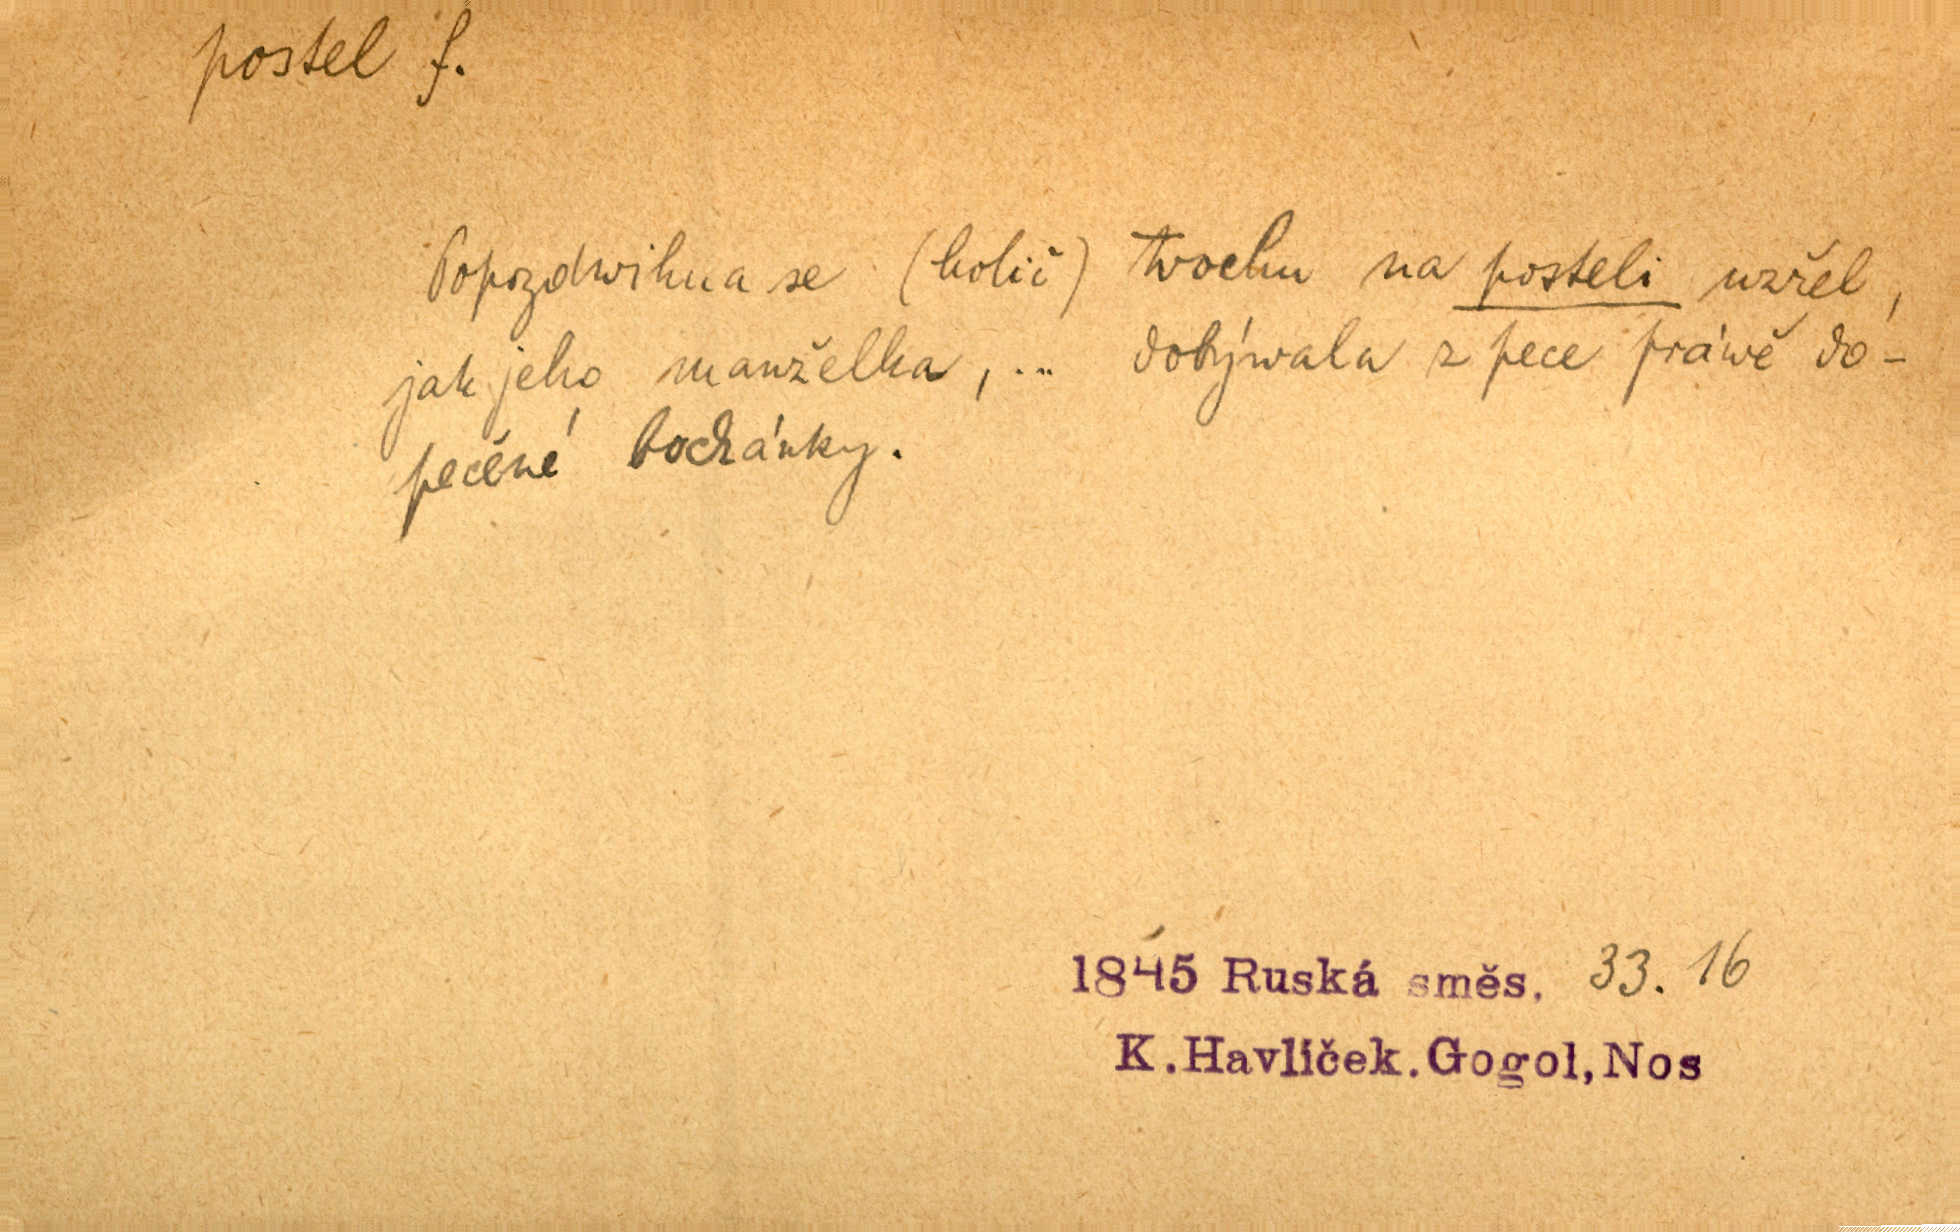 postel f.
Popozdwihna se (holič) trochu na posteli uzřel,
jak jeho manželka, ... dobýwala z pece práwě do-
pečené bochánky.
1845 Ruská směs. 33. 16
K. Havlíček. Gogol, Nos